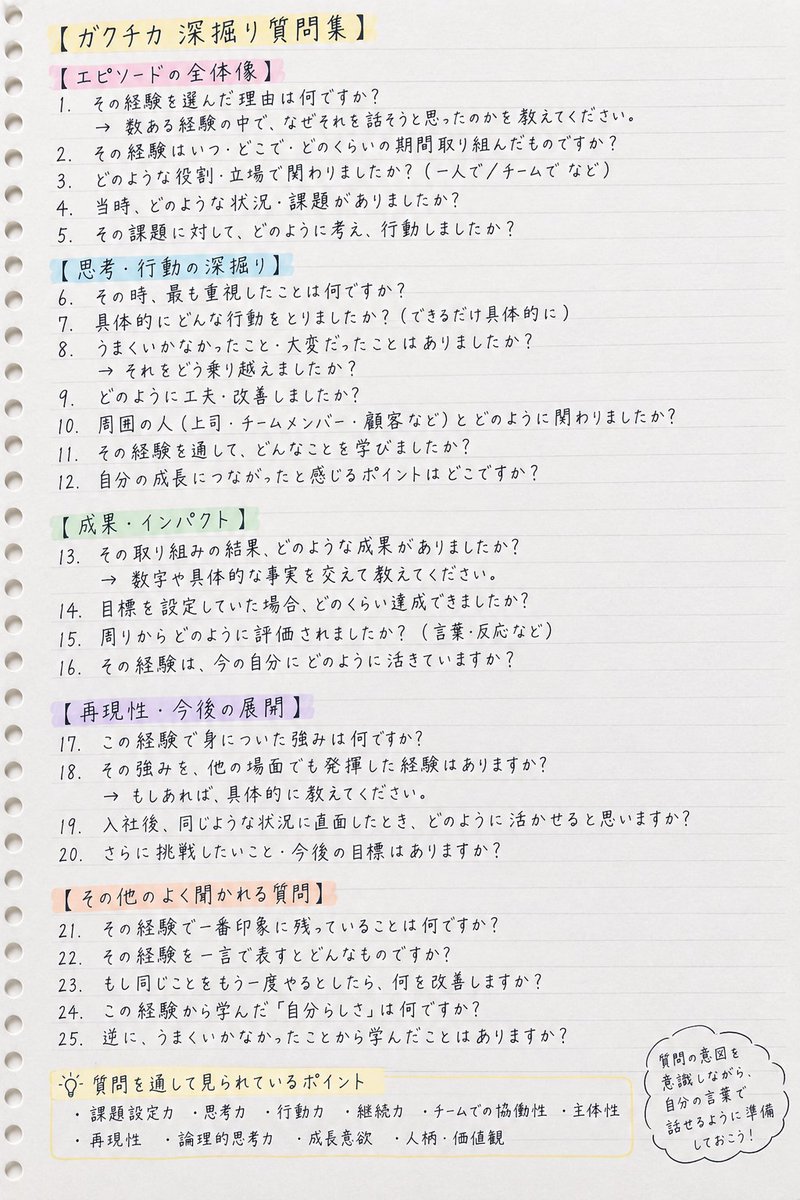 【ガクチカ 深掘り質問集】
【エピソードの全体像】
1. その経験を選んだ理由は何ですか？
→ 数ある経験の中で、なぜそれを話そうと思ったのかを教えてください。
2. その経験はいつ・どこで・どのくらいの期間取り組んだものですか？
3. どのような役割・立場で関わりましたか？（一人で／チームで など）
4. 当時、どのような状況・課題がありましたか？
5. その課題に対して、どのように考え、行動しましたか？
【思考・行動の深掘り】
6. その時、最も重視したことは何ですか？
7. 具体的にどんな行動をとりましたか？（できるだけ具体的に）
8. うまくいかなかったこと・大変だったことはありましたか？
→ それをどう乗り越えましたか？
9. どのように工夫・改善しましたか？
10. 周囲の人（上司・チームメンバー・顧客など）とどのように関わりましたか？
11. その経験を通して、どんなことを学びましたか？
12. 自分の成長につながったと感じるポイントはどこですか？
【成果・インパクト】
13. その取り組みの結果、どのような成果がありましたか？
→ 数字や具体的な事実を交えて教えてください。
14. 目標を設定していた場合、どのくらい達成できましたか？
15. 周りからどのように評価されましたか？（言葉・反応など）
16. その経験は、今の自分にどのように活きていますか？
【再現性・今後の展開】
17. この経験で身についた強みは何ですか？
18. その強みを、他の場面でも発揮した経験はありますか？
→ もしあれば、具体的に教えてください。
19. 入社後、同じような状況に直面したとき、どのように活かせると思いますか？
20. さらに挑戦したいこと・今後の目標はありますか？
【その他のよく聞かれる質問】
21. その経験で一番印象に残っていることは何ですか？
22. その経験を一言で表すとどんなものですか？
23. もし同じことをもう一度やるとしたら、何を改善しますか？
24. この経験から学んだ「自分らしさ」は何ですか？
25. 逆に、うまくいかなかったことから学んだことはありますか？
質問を通して見られているポイント
・課題設定力 ・思考力 ・行動力 ・継続力 ・チームでの協働性 ・主体性
・再現性 ・論理的思考力 ・成長意欲 ・人柄・価値観
質問の意図を
意識しながら、
自分の言葉で
話せるように準備
しておこう！